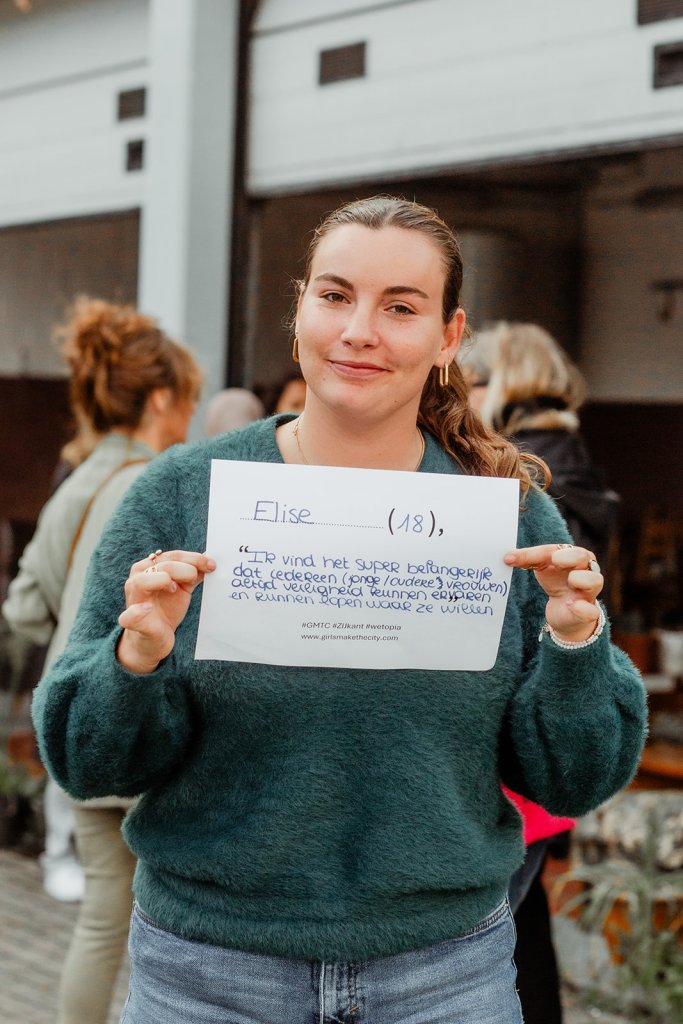 Elise (18),
“Ik vind het super belangerijk
dat iedereen (jonge/oudere vrouwen)
altijd veiligheid kunnen ervaren
en kunnen lopen waar ze willen”
#GMTC #ZIJkant #wetopia
www.girlsmakethecity.com